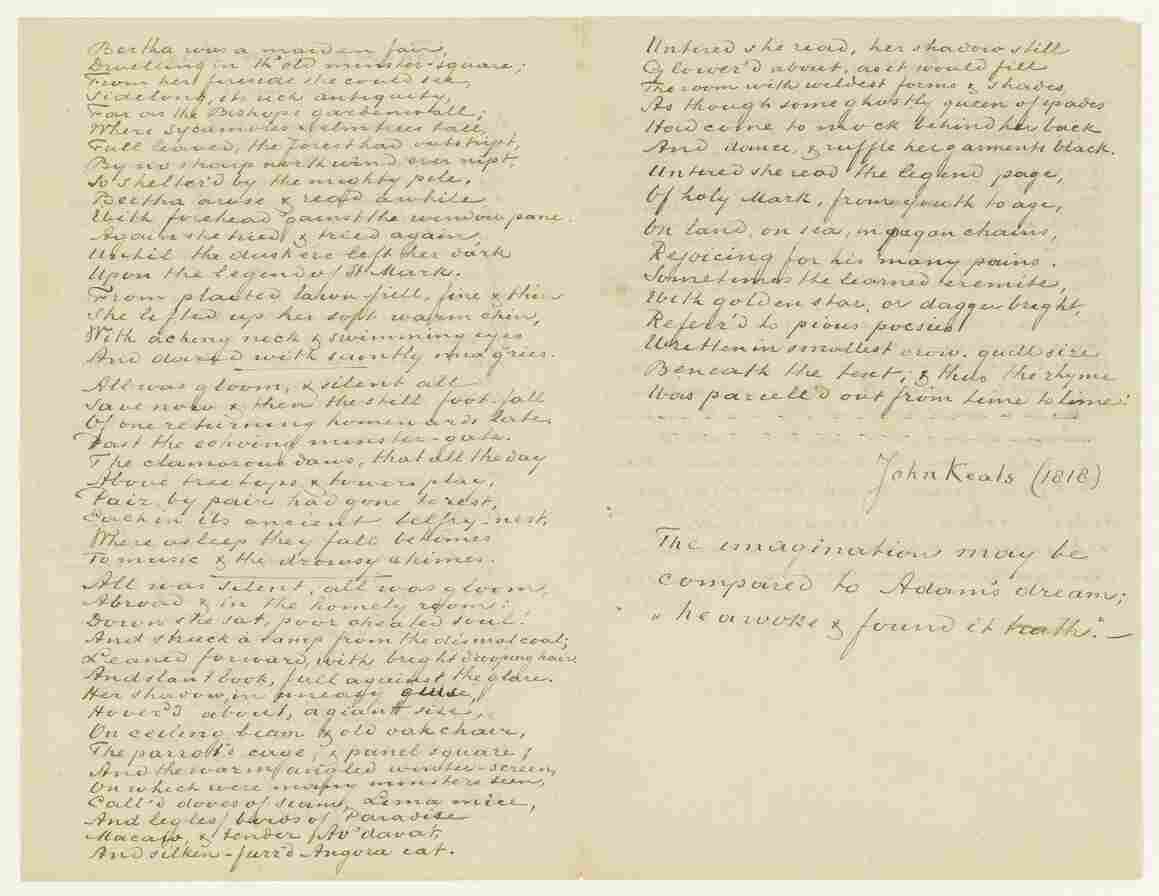 Bertha was a maiden fair,
Dwelling in th' old minster-square;
From her fireside she could see,
Sidelong, its rich antiquity,
Far as the Bishop's garden wall,
Where Sycamores & elm trees tall,
Full leaved, the forest had outstript,
By no sharp north wind ever nipt,
So shelter'd by the mighty pile.
Bertha arose & read awhile
With forehead 'gainst the window pane.
Again she tried, & tried again,
Until the dusk eve left her dark
Upon the legend of St Mark.
From plaited lawn-frill, fine & thin
She lifted up her soft warm chin,
With aching neck & swimming eyes
And dazed with saintly imageries.
All was gloom, & silent all
Save now & then the still foot-fall
Of one returning homewards late,
Past the echoing minster-gate.
The clamorous daws, that all the day
Above tree tops & towers play,
Pair by pair had gone to rest,
Each in its ancient belfry-nest,
Where asleep they fall betimes
To music & the drowsy chimes.
All was silent, all was gloom,
Abroad & in the homely room:
Down she sat, poor cheated soul!
And struck a lamp from the dismal coal;
Leaned forward, with bright drooping hair
And slant book, full against the glare.
Her shadow, in uneasy guise,
Hover'd about, a giant size,
On ceiling beam & old oak chair,
The parrot's cage, & panel square;
And the warm angled winter-screen,
On which were many minsters seen,
Call'd doves of Siam, Lima mice,
And legless birds of Paradise
Macaw, & tender Av'davat,
And silken-furr'd Angora cat.
Untired she read, her shadow still
Glower'd about, as it would fill
The room with wildest forms & shades,
As though some ghostly queen of spades
Had come to mock behind her back
And dance, & ruffle her garments black.
Untired she read the legend page,
Of holy Mark, from youth to age,
On land, on sea, in pagan chains,
Rejoicing for his many pains.
Sometimes the learned eremite,
With golden star, or dagger bright,
Referr'd to pious poesies
Written in smallest crow-quill size
Beneath the text; & thus the rhyme
Was parcell'd out from time to time:
John Keats (1818)
The imagination may be
compared to Adam's dream;
"he awoke & found it truth."—